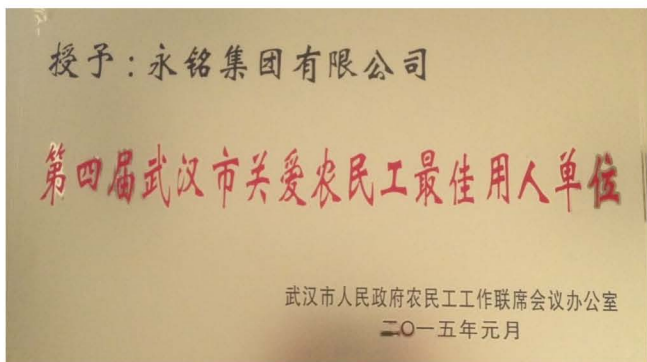 授予：永铭集团有限公司
第四届武汉市关爱农民工最佳用人单位
武汉市人民政府农民工工作联席会议办公室
二〇一五年元月